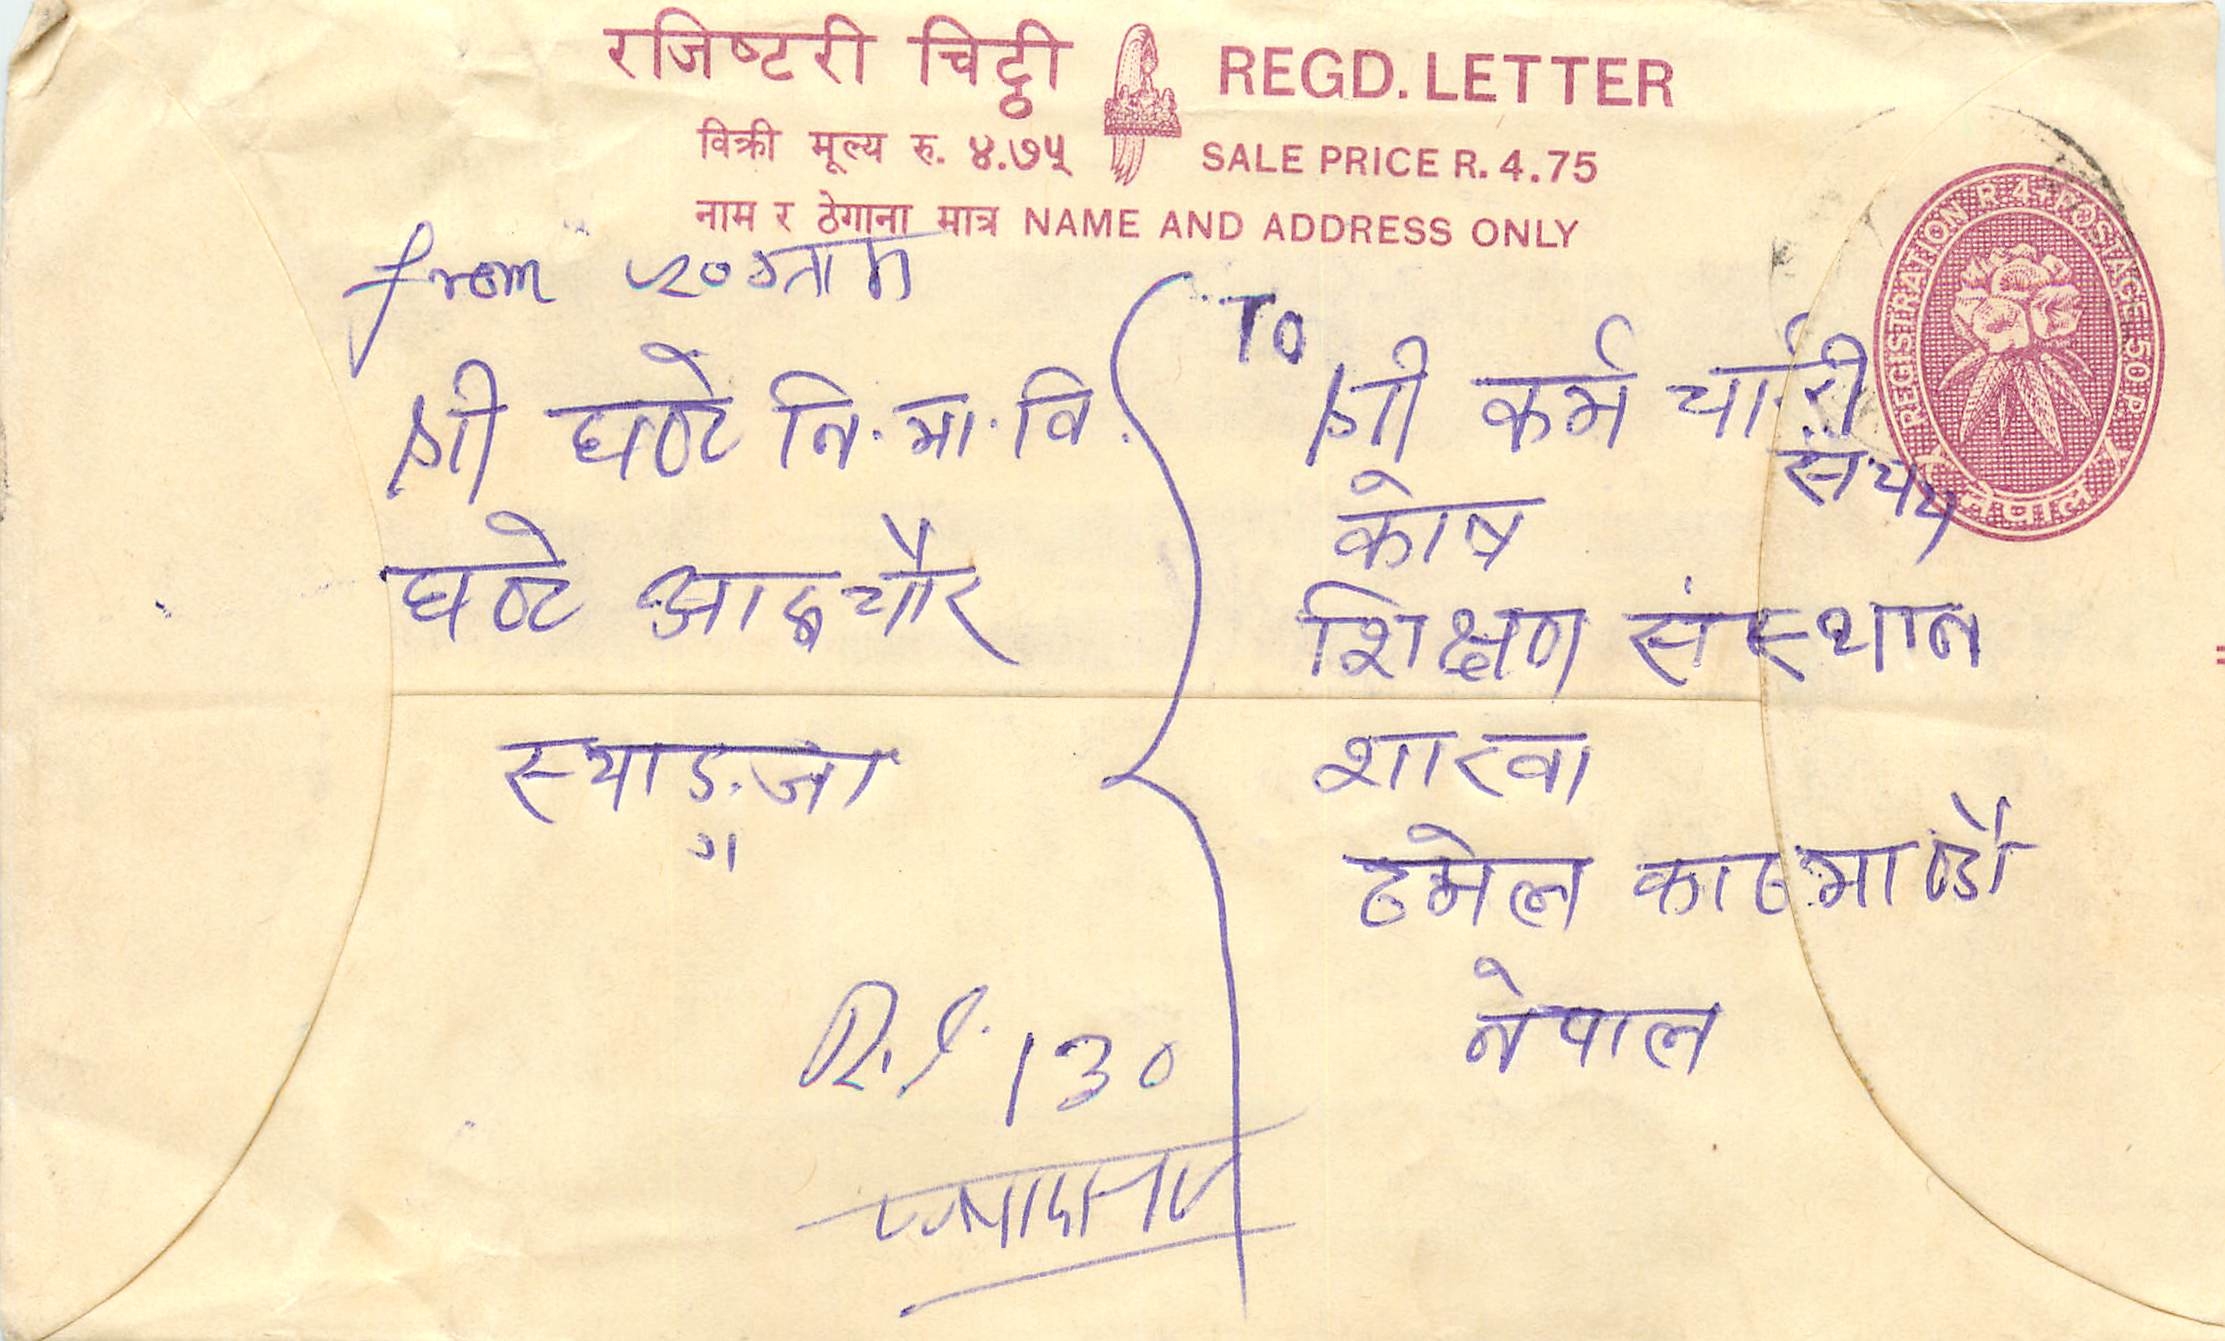 रजिष्टरी चिट्ठी REGD. LETTER
विक्री मूल्य रु. ४.७५ SALE PRICE R. 4.75
नाम र ठेगाना मात्र NAME AND ADDRESS ONLY
REGISTRATION R 4 + POSTAGE 50 P.
नेपाल
from २० ग्राम
श्री घण्टे नि.मा.वि.
घण्टे आरुचौर
स्याङ.जा
To
श्री कर्मचारी
संचय
कोष
शिक्षण संस्थान
शाखा
ठमेल काठमाण्डौ
नेपाल
130